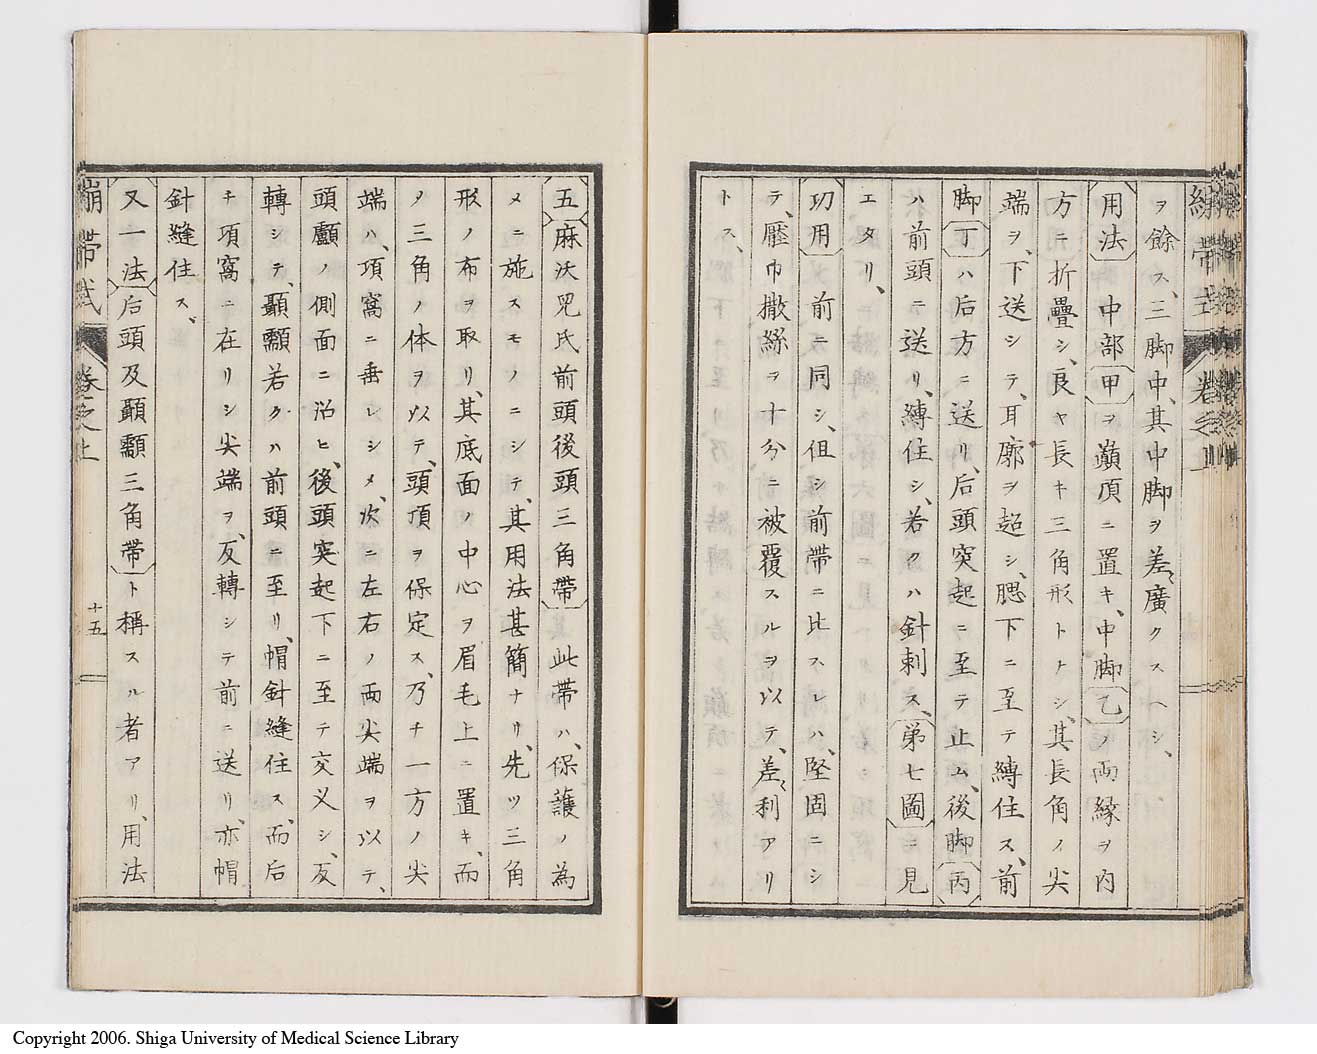 繃帶式 卷之上
ヲ餘ス、三脚中、其中脚ヲ差〻廣クスヘシ、
用法 中部甲ヲ巓頂ニ置キ、中脚乙ノ両縁ヲ内
方ニ折疊シ、良ヤ長キ三角形トナシ、其長角ノ尖
端ヲ、下送シテ、耳廓ヲ超シ、腮下ニ至テ縛住ス、前
脚丁ハ后方ニ送リ、后頭突起ニ至テ止ム、後脚丙
ハ前頭ニ送リ、縛住シ、若クハ針刺ス、第七圖ニ見
エタリ、
功用 前ニ同シ、但シ前帶ニ比スレハ、堅固ニシ
テ、壓巾撒絲ヲ十分ニ被覆スルヲ以テ、差〻利アリ
トス、
五麻沃兒氏前頭後頭三角帶 此帶ハ、保護ノ為
メニ施スモノニシテ、其用法甚簡ナリ、先ツ三角
形ノ布ヲ取リ、其底面ノ中心ヲ眉毛上ニ置キ、而
ノ三角ノ体ヲ以テ、頭頂ヲ保定ス、乃チ一方ノ尖
端ハ、項窩ニ垂レシメ、次ニ左右ノ両尖端ヲ以テ、
頭顱ノ側面ニ沿ヒ、後頭突起下ニ至テ交义シ、反
轉シテ、顳顬若クハ前頭ニ至リ、帽針縫住ス、而后
チ項窩ニ在リシ尖端ヲ、反轉シテ前ニ送リ、亦帽
針縫住ス、
又一法后頭及顳顬三角帶ト稱スル者アリ、用法
繃帶式 卷之上 十五
Copyright 2006. Shiga University of Medical Science Library